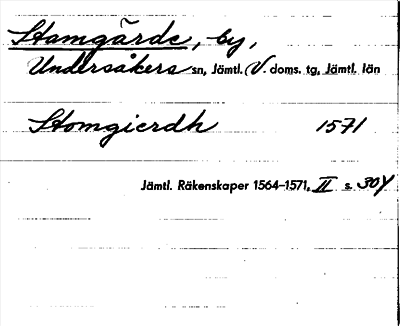 Stamgärde, by,
Undersåkers sn, Jämtl. V. doms. tg, Jämtl. län
Stomgierdh 1571
Jämtl. Räkenskaper 1564–1571, II s.